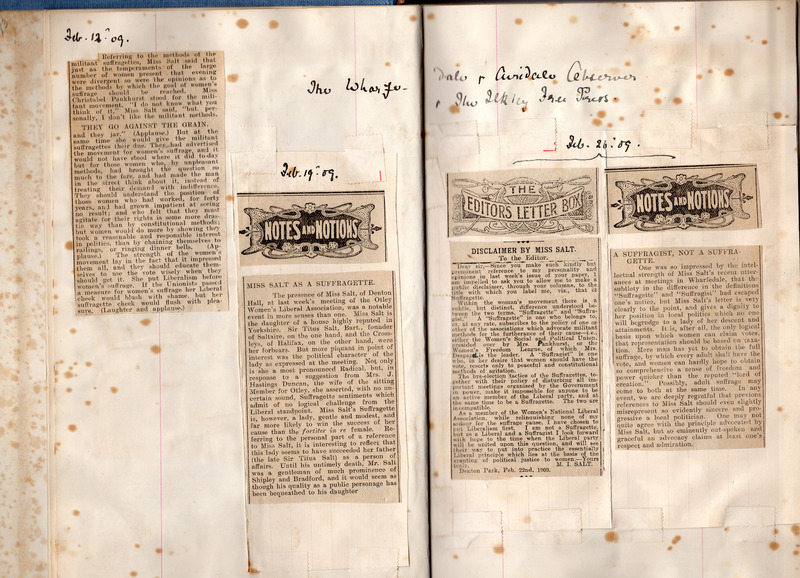 Feb. 12th 09.
Referring to the methods of the
militant suffragettes, Miss Salt said that
just as the temperaments of the large
number of women present that evening
were divergent so were the opinions as to
the methods by which the goal of women's
suffrage should be reached. Miss
Christabel Pankhurst stood for the mili-
tant movement. "I do not know what you
think of it," Miss Salt said, "but, per-
sonally, I don't like the militant methods.
THEY GO AGAINST THE GRAIN.
and they jar." (Applause.) But at the
same time she would give the militant
suffragettes their due. They had advertised
the movement for women's suffrage, and it
would not have stood where it did to-day
but for those women who, by unpleasant
methods, had brought the question so
much to the fore, and had made the man
in the street think about it, instead of
treating their demand with indifference.
They should understand the position of
those women who had worked, for forty
years, and had grown impatient at seeing
no result; and who felt that they must
agitate for their rights in some more dras-
tic way than by constitutional methods;
but women would do more by showing they
took a reasonable and responsible interest
in politics, than by chaining themselves to
railings, or ringing dinner bells. (Ap-
plause.) The strength of the women's
movement lay in the fact that it impressed
them all, and they should educate them-
selves to use the vote wisely when they
should get it. She put Liberalism before
women's suffrage. If the Unionists passed
a measure for women's suffrage her Liberal
cheek would blush with shame, but her
suffragette cheek would flush with plea-
sure. (Laughter and applause.)
The Wharfe-
Feb. 19th 09.
NOTES AND NOTIONS
MISS SALT AS A SUFFRAGETTE.
The presence of Miss Salt, of Denton
Hall, at last week's meeting of the Otley
Women's Liberal Association, was a notable
event in more senses than one. Miss Salt is
the daughter of a house highly reputed in
Yorkshire. Sir Titus Salt, Bart., founder
of Saltaire, on the one hand, and the Cross-
leys, of Halifax, on the other hand, were
her forbears. But more piquant in point
of interest was the political character of the
lady as expressed at the meeting. Not only
is she a most pronounced Radical, but, in
response to a suggestion from Mrs. J.
Hastings Duncan, the wife of the sitting
Member for Otley, she asserted, with no un-
certain sound, Suffragette sentiments which
admit of no logical challenge from the
Liberal standpoint. Miss Salt's Suffragette
is, however, a lady, gentle and modest, and
far more likely to win the success of her
cause than the fortiter in re female. Re-
ferring to the personal part of a reference
to Miss Salt, it is interesting to reflect that
this lady seems to have succeeded her father
(the late Sir Titus Salt) as a person of
affairs. Until his untimely death, Mr. Salt
was a gentleman of much prominence of
Shipley and Bradford, and it would seem as
though his quality as a public personage has
been bequeathed to his daughter
dale & Airedale Observer
& The Ilkley Free Press.
Feb. 26th 09.
THE
EDITORS LETTER BOX
DISCLAIMER BY MISS SALT.
To the Editor.
Dear sir,—Since you make such kindly but
prominent reference to my personality and
opinions in last week's issue of your paper, I
am impelled to ask you to allow me to make a
public disclaimer, through your columns, to the
title with which you label me, viz., that of
Suffragette.
Within the woman's movement there is a
subtle, but distinct, difference understood be-
tween the two terms, "Suffragette" and "Suffra-
gist." A "Suffragette" is one who belongs to,
or, at any rate, subscribes to the policy of one or
other of the associations which advocate militant
methods for the furtherance of their cause—i.e.,
either the Women's Social and Political Union,
presided over by Mrs. Pankhurst, or the
Women's Freedom League, of which Mrs.
Despard is the leader. A "Suffragist" is one
who, in her desire that women should have the
vote, resorts only to peaceful and constitutional
methods of agitation.
The bye-election tactics of the Suffragettes, to-
gether with their policy of disturbing all im-
portant meetings organised by the Government
in power, make it impossible for anyone to be
an active member of the Liberal party, and at
the same time to be a Suffragette. The two are
incompatible.
As a member of the Women's National Liberal
Association, while relinquishing none of my
ardour for the suffrage cause, I have chosen to
put Liberalism first. I am not a Suffragette,
but as a Liberal and a Suffragist I look forward
with hope to the time when the Liberal party
will be united upon this question, and will see
their way to put into practice the essentially
Liberal principle which lies at the basis of the
granting of political justice to women.—Yours
truly, M. I. SALT.
Denton Park, Feb. 22nd, 1909.
NOTES AND NOTIONS
A SUFFRAGIST, NOT A SUFFRA-
GETTE.
One was so impressed by the intel-
lectual strength of Miss Salt's recent utter-
ances at meetings in Wharfedale, that the
subtlety in the difference in the definitions
"Suffragette" and "Suffragist" had escaped
one's notice, but Miss Salt's letter is very
clearly to the point, and gives a dignity to
her position in local politics which no one
will begrudge to a lady of her descent and
attainments. It is, after all, the only logical
basis upon which women can claim votes
that representation should be based on taxa-
tion. Mere man has yet to obtain the full
suffrage, by which every adult shall have the
vote, and women can hardly hope to obtain
so comprehensive a sense of freedom and
power quicker than the reputed "lord of
creation." Possibly, adult suffrage may
come to both at the same time. In any
event, we are deeply regretful that previous
references to Miss Salt should even slightly
misrepresent so evidently sincere and pro-
gressive a local politician. One may not
quite agree with the principle advocated by
Miss Salt, but so eminently out-spoken and
graceful an advocacy claims at least one's
respect and admiration.